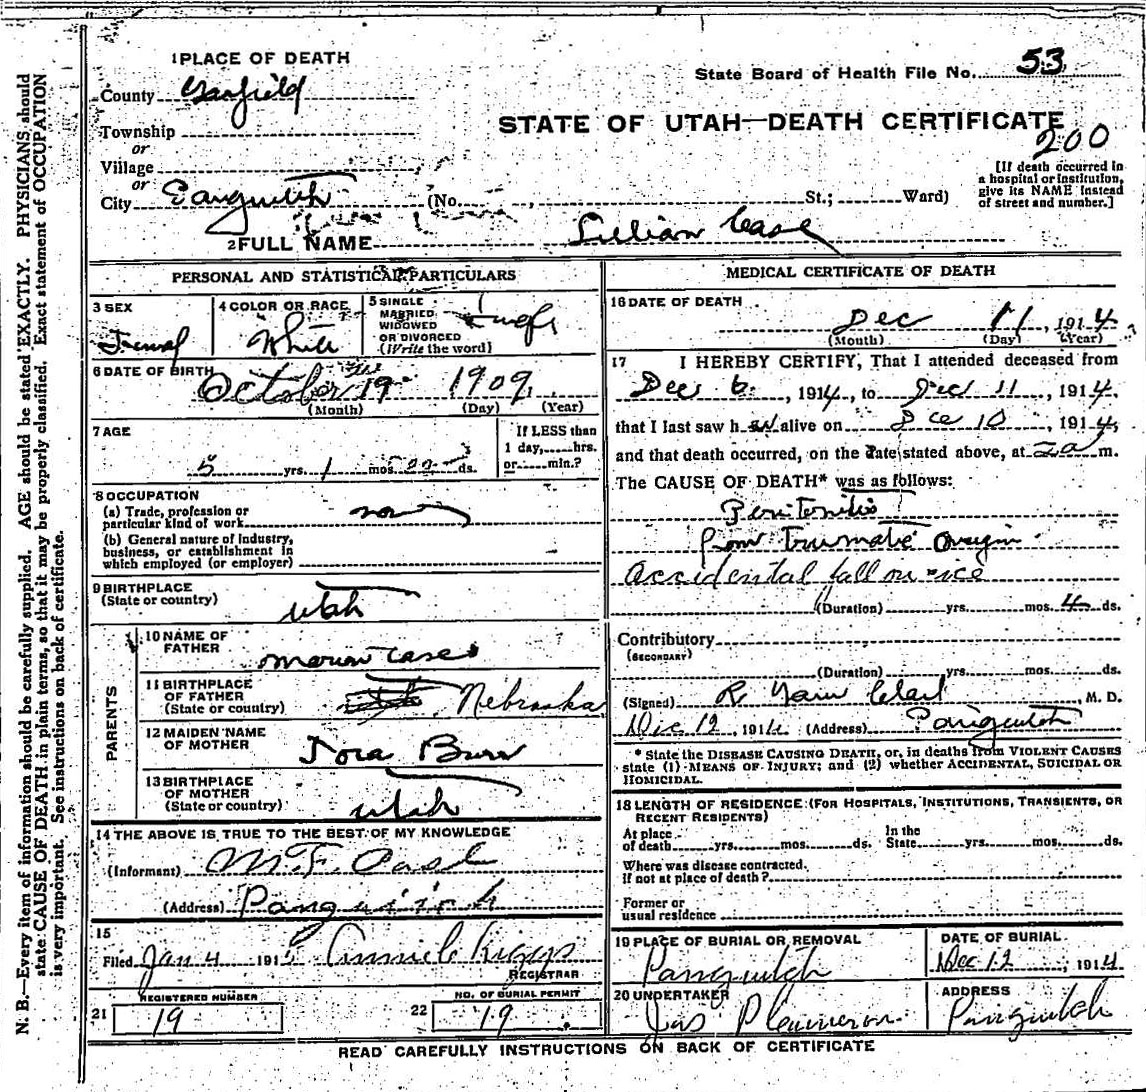 1 PLACE OF DEATH
State Board of Health File No. 53
County Garfield
STATE OF UTAH—DEATH CERTIFICATE
200
Township
or
Village
or
City Panguitch (No. St.; Ward)
[If death occurred in
a hospital or institution,
give its NAME instead
of street and number.]
2 FULL NAME Lillian Case
PERSONAL AND STATISTICAL PARTICULARS
3 SEX
4 COLOR OR RACE White
5 SINGLE
MARRIED
WIDOWED
OR DIVORCED
(Write the word)
6 DATE OF BIRTH October 19 1909
(Month) (Day) (Year)
7 AGE
5 yrs. 1 mos. ds.
If LESS than
1 day, hrs.
or min.?
8 OCCUPATION
(a) Trade, profession or
particular kind of work
(b) General nature of industry,
business, or establishment in
which employed (or employer)
9 BIRTHPLACE
(State or country) Utah
PARENTS
10 NAME OF
FATHER Marion Case
11 BIRTHPLACE
OF FATHER
(State or country) Nebraska
12 MAIDEN NAME
OF MOTHER
13 BIRTHPLACE
OF MOTHER
(State or country) Utah
14 THE ABOVE IS TRUE TO THE BEST OF MY KNOWLEDGE
(Informant) M. F. Case
(Address) Panguitch
15
Filed Jan 4 1915
REGISTRAR
REGISTERED NUMBER
21 19
NO. OF BURIAL PERMIT
22 19
MEDICAL CERTIFICATE OF DEATH
16 DATE OF DEATH
Dec 11, 1914
(Month) (Day) (Year)
17 I HEREBY CERTIFY, That I attended deceased from
Dec 6, 1914, to Dec 11, 1914,
that I last saw h er alive on Dec 10, 1914,
and that death occurred, on the date stated above, at 2 a m.
The CAUSE OF DEATH* was as follows:
Peritonitis
from trumatic origin
accidental fall on ice
(Duration) yrs. mos. 4 ds.
Contributory
(SECONDARY)
(Duration) yrs. mos. ds.
(Signed) R Clark, M. D.
Dec 12, 1914 (Address) Panguitch
* State the DISEASE CAUSING DEATH, or, in deaths from VIOLENT CAUSES
state (1) MEANS OF INJURY; and (2) whether ACCIDENTAL, SUICIDAL OR
HOMICIDAL.
18 LENGTH OF RESIDENCE (FOR HOSPITALS, INSTITUTIONS, TRANSIENTS, OR
RECENT RESIDENTS)
At place
of death yrs. mos. ds.
In the
State yrs. mos. ds.
Where was disease contracted.
If not at place of death?
Former or
usual residence
19 PLACE OF BURIAL OR REMOVAL
Panguitch
DATE OF BURIAL
Dec 12, 1914
20 UNDERTAKER
Jas P Cameron
ADDRESS
Panguitch
READ CAREFULLY INSTRUCTIONS ON BACK OF CERTIFICATE
N. B.—Every item of information should be carefully supplied. AGE should be stated EXACTLY. PHYSICIANS should
state CAUSE OF DEATH in plain terms, so that it may be properly classified. Exact statement of OCCUPATION
is very important. See instructions on back of certificate.